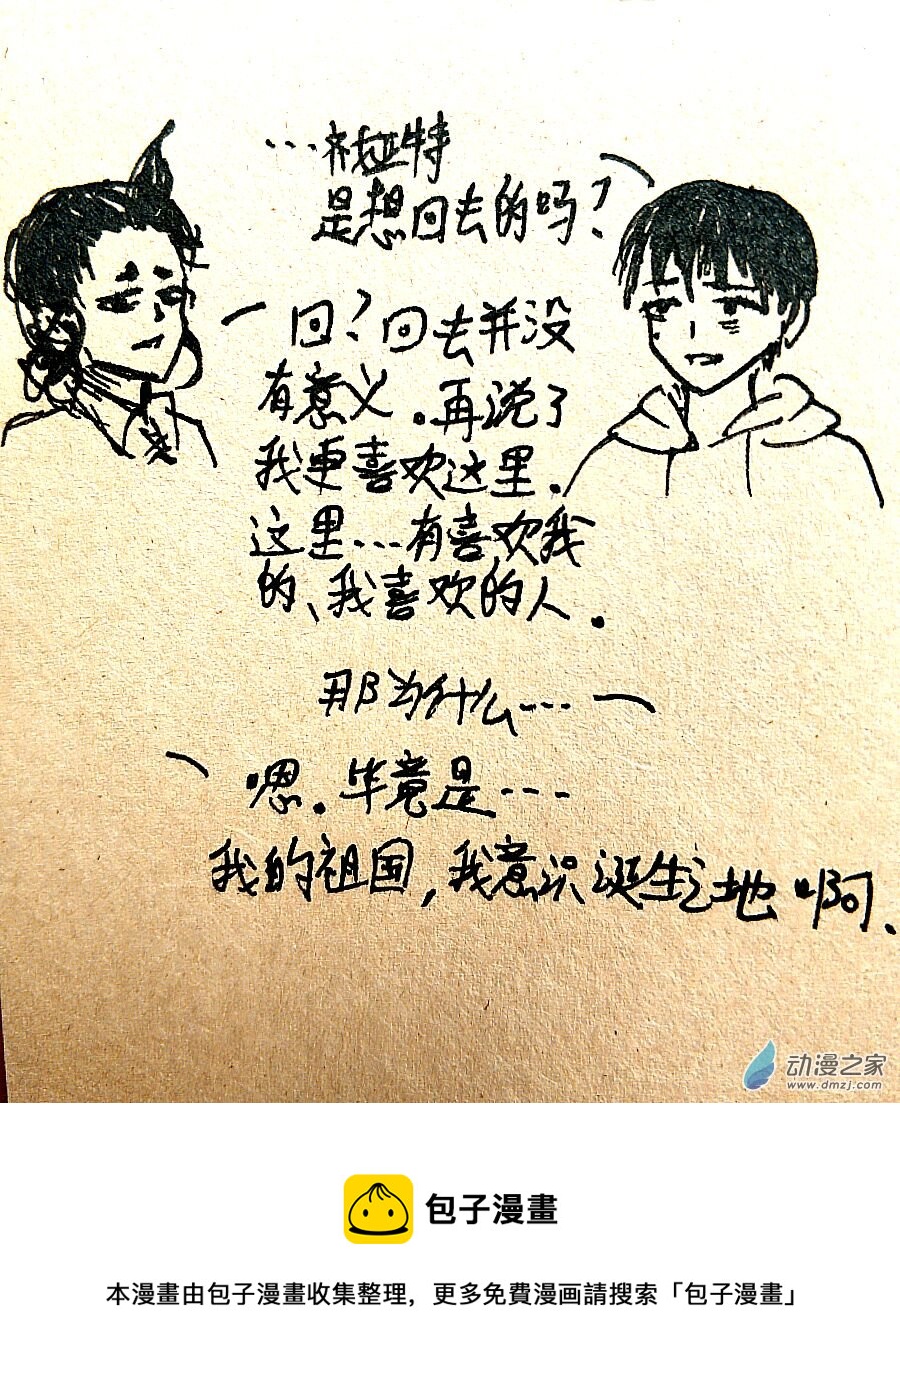 亚特
是想回去的吗?
回?回去并没
有意义.再说了
我更喜欢这里.
这里...有喜欢我
的、我喜欢的人.
那为什么....
嗯.毕竟是...
我的祖国,我意识诞生之地啊.
动漫之家
www.dmzj.com
包子漫畫
本漫畫由包子漫畫收集整理,更多免費漫画請搜索「包子漫畫」